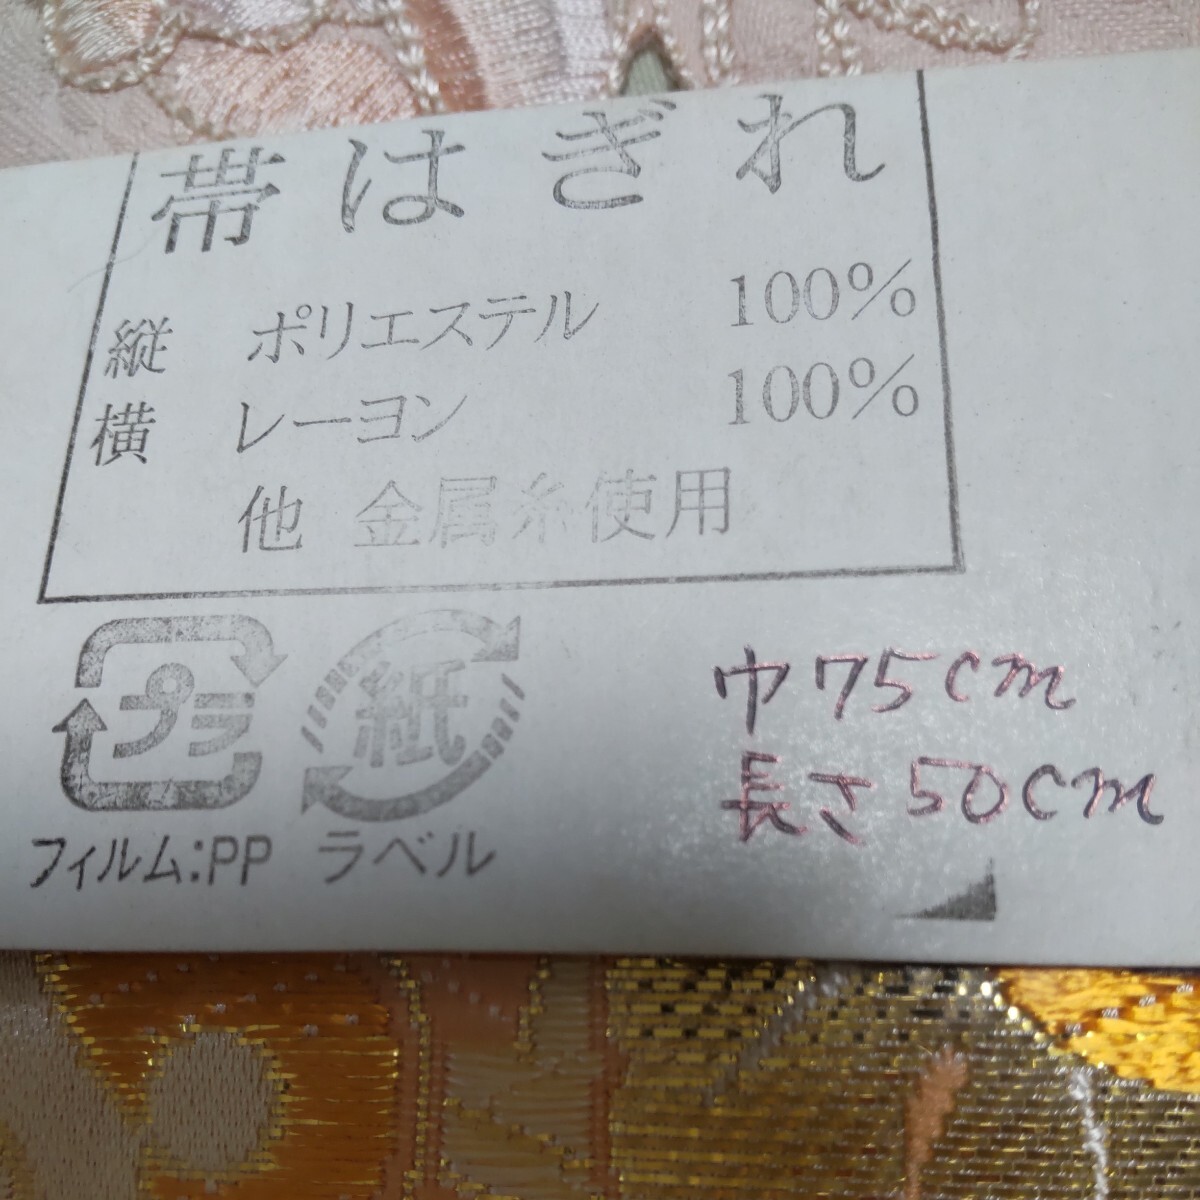 帯はぎれ
縦 ポリエステル 100%
横 レーヨン 100%
他 金属糸使用
プラ 紙
フィルム:PP ラベル
巾75cm
長さ50cm